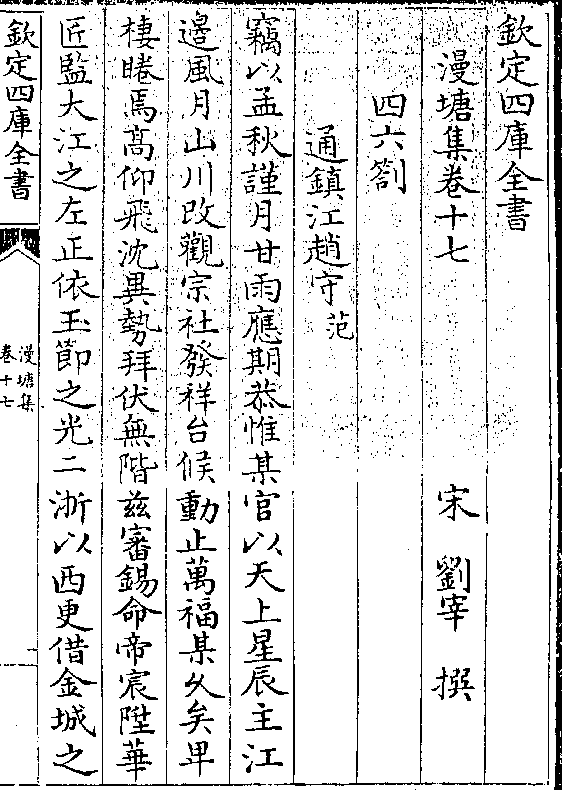 欽定四庫全書
漫塘集卷十七
宋 劉宰 撰
四六劄
通鎮江趙守范
竊以孟秋謹月甘雨應期恭惟某官以天上星辰主江
邉風月山川改觀宗社發祥台候動止萬福某乆矣畢
棲睠焉髙仰飛沈異勢拜伏無階兹審錫命帝宸陞華
匠監大江之左正依玉節之光二浙以西更借金城之
欽定四庫全書
漫塘集
卷十七